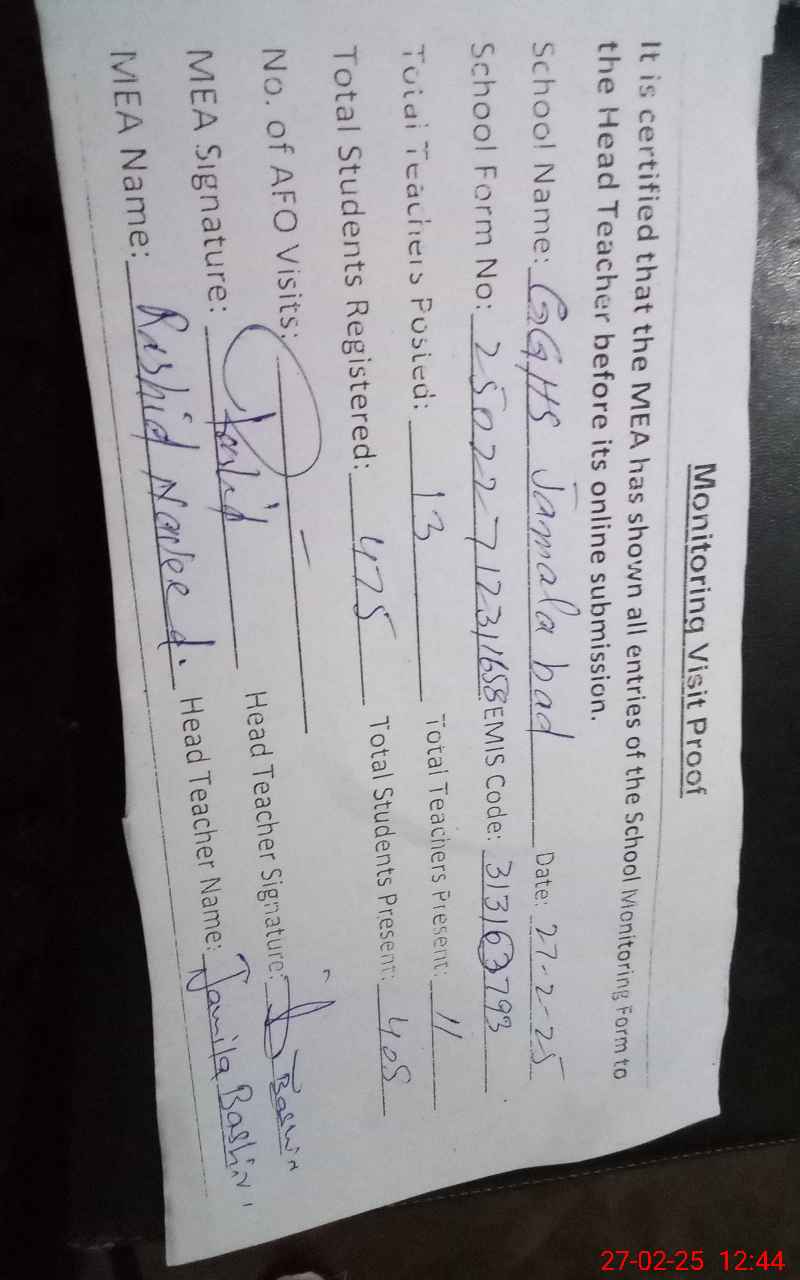 Monitoring Visit Proof
It is certified that the MEA has shown all entries of the School Monitoring Form to
the Head Teacher before its online submission.
School Name: GGHS Jamala bad Date: 27-2-25
School Form No: EMIS Code: 313163793
Total Teachers Posted: 13 Total Teachers Present: 11
Total Students Registered: 475 Total Students Present: 408
No. of AFO Visits: —
MEA Signature: Rashid Head Teacher Signature: Bashir
MEA Name: Rashid Naveed. Head Teacher Name: Jamila Bashir
27-02-25 12:44